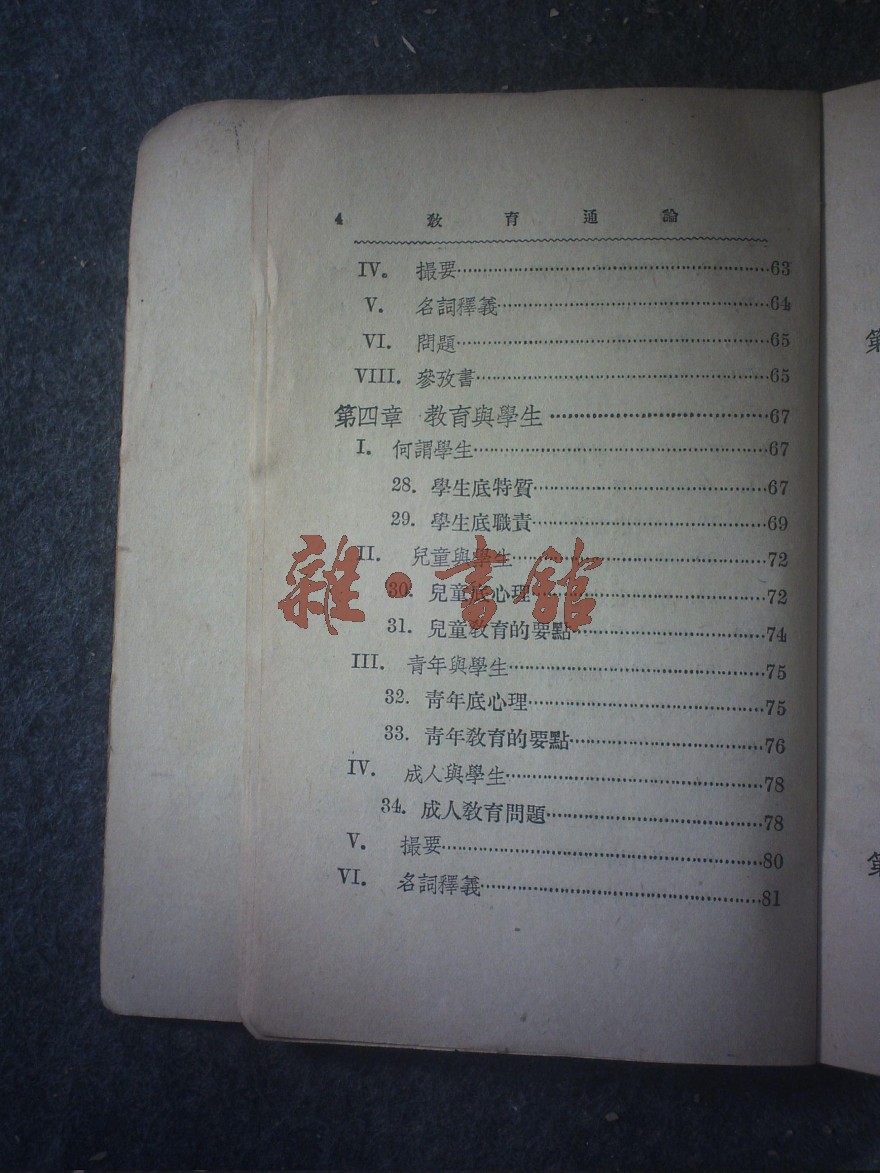 4 教育通論
IV。 撮要……63
V. 名詞釋義……64
VI. 問題……65
VIII. 參攷書……65
第四章 教育與學生……67
I. 何謂學生……67
28. 學生底特質……67
29. 學生底職責……69
II. 兒童與學生……72
30. 兒童底心理……72
31. 兒童教育的要點……74
III. 青年與學生……75
32. 青年底心理……75
33. 青年教育的要點……76
IV. 成人與學生……78
34. 成人教育問題……78
V. 撮要……80
VI. 名詞釋義……81
雜·書館